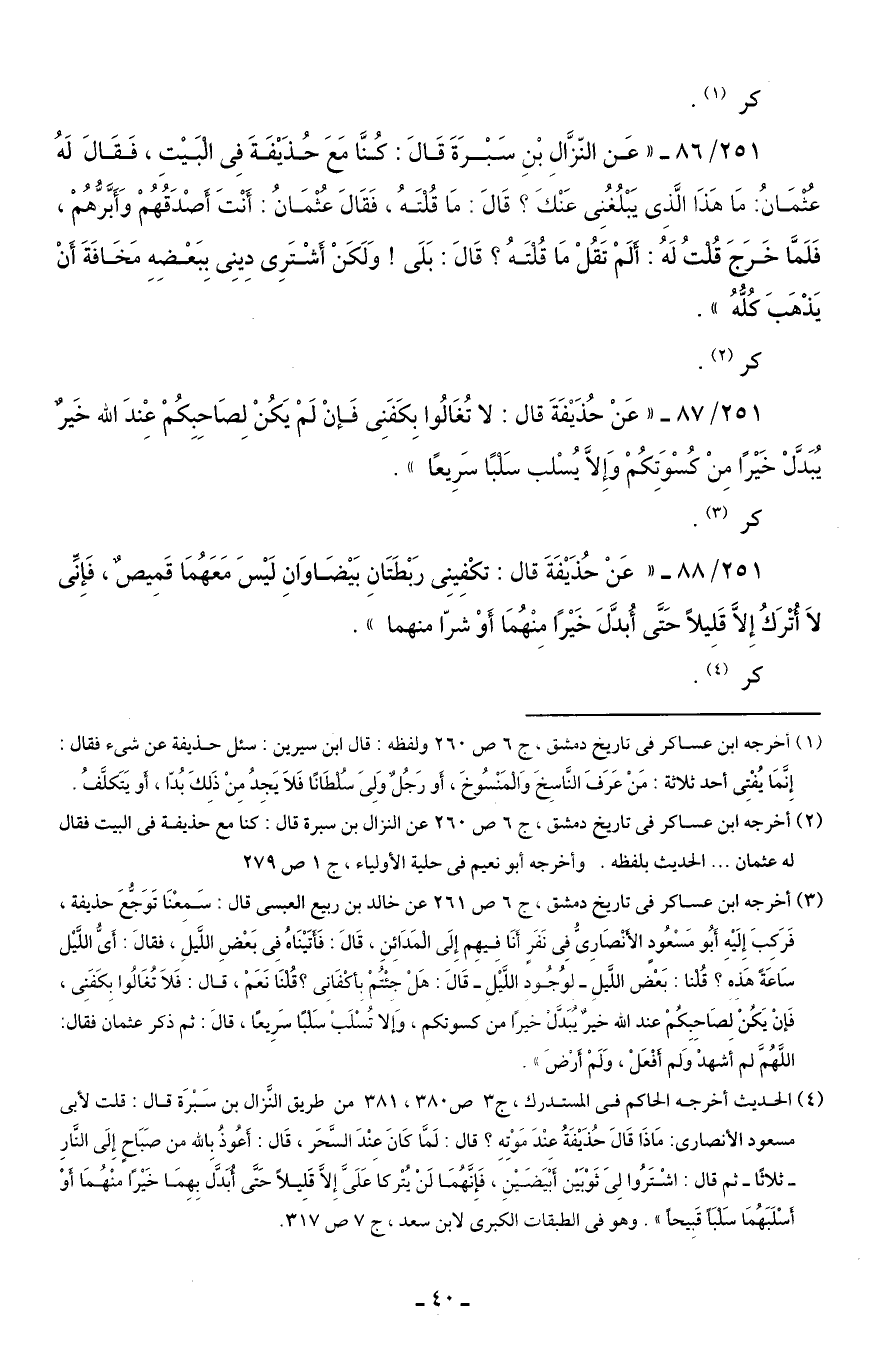 كر (١) .
٨٦/٢٥١ ـ « عَنِ النَّزَّالِ بْنِ سَبْرَةَ قَالَ : كُنَّا مَعَ حُذَيْفَةَ فِى الْبَيْتِ ، فَقَالَ لَهُ
عُثْمَانُ: مَا هَذَا الَّذِى يَبْلُغُنِى عَنْكَ ؟ قَالَ : مَا قُلْتَهُ ، فَقَالَ عُثْمَانُ : أَنْتَ أَصْدَقُهُمْ وَأَبَرُّهُمْ ،
فَلَمَّا خَرَجَ قُلْتُ لَهُ : أَلَمْ تَقُلْ مَا قُلْتَهُ ؟ قَالَ : بَلَى ! وَلَكَنْ أَشْتَرِى دِينِى بِبَعْضِهِ مَخَافَةَ أَنْ
يَذْهَبَ كُلُّهُ » .
كر (٢) .
٨٧/٢٥١ ـ « عَنْ حُذَيْفَةَ قال : لا تُغَالُوا بِكَفَنِى فَإِنْ لَمْ يَكُنْ لِصَاحِبِكُمْ عِنْدَ الله خَيرٌ
يُبَدَّلْ خَيْرًا مِنْ كُسْوَتِكُمْ وَإِلاَّ يُسْلب سَلْبًا سَرِيعًا » .
كر (٣) .
٨٨/٢٥١ ـ « عَنْ حُذَيْفَةَ قال : تكْفِينِى رَبْطَتَانِ بَيْضَاوَانِ لَيْسَ مَعَهُمَا قَمِيصٌ ، فَإِنِّى
لاَ أُتْرَكُ إِلاَّ قَلِيلاً حَتَّى أُبدَّلَ خَيْرًا مِنْهُمَا أَوْ شرّا منهما » .
كر (٤) .
(١) أخرجه ابن عساكر فى تاريخ دمشق ، ج ٦ ص ٢٦٠ ولفظه : قال ابن سيرين : سئل حذيفة عن شىء فقال :
إِنَّمَا يُفْتِى أحد ثلاثة : مَنْ عَرَفَ النَّاسِخَ وَالمَنْسُوخَ ، أو رَجُلٌ وَلِىَ سُلْطَانًا فَلاَ يَجِدُ مِنْ ذَلِكَ بُدّا ، أو يَتَكلَّفُ .
(٢) أخرجه ابن عساكر فى تاريخ دمشق ، ج ٦ ص ٢٦٠ عن النزال بن سبرة قال : كنا مع حذيفة فى البيت فقال
له عثمان ... الحديث بلفظه . وأخرجه أبو نعيم فى حلية الأولياء ، ج ١ ص ٢٧٩
(٣) أخرجه ابن عساكر فى تاريخ دمشق ، ج ٦ ص ٢٦١ عن خالد بن ربيع العبسى قال : سَمِعْنَا تَوَجُّعَ حذيفة ،
فَرَكِبَ إِلَيْهِ أَبُو مَسْعُودٍ الأنْصَارِىُّ فِى نَفَرٍ أنَا فِيهِم إِلَى الْمَدَائِنِ ، قَالَ : فَأَتَيْنَاهُ فِى بَعْضِ اللَّيلِ ، فقالَ : أَىُّ اللَّيْلِ
سَاعَةً هَذِهِ ؟ قُلْنَا : بَعْض اللَّيلِ ـ لِوجُودِ اللَّيْلِ ـ قَالَ : هَلْ جِئْتُمْ بِأكْفَانِى ؟قُلْنَا نَعَمْ ، قال : فَلاَ تُغَالُوا بِكَفَنِى ،
فَإِنْ يَكُنْ لِصَاحِبِكُمْ عند الله خيرٌ يُبَدَّلْ خيرًا من كسوتكم ، وَإِلا تُسْلَبْ سَلْبًا سَرِيعًا ، قالَ : ثم ذكر عثمان فقال:
اللَّهُمَّ لم أشهدْ وَلم أفْعَلْ ، وَلَمْ أرْضَ » .
(٤) الحديث أخرجه الحاكم فى المستدرك ، ج٣ ص ٣٨٠ ، ٣٨١ من طريق النَّزال بن سَبْرَة قال : قلت لأبى
مسعود الأنصارى: مَاذَا قَالَ حُذَيْفَةُ عِنْدَ مَوْتِهِ ؟ قال : لَمَّا كَانَ عِنْدَ السَّحَرِ ، قال : أَعُوذُ بالله من صبَاحٍ إِلَى النَّارِ
ـ ثلاثًا ـ ثم قال : اشْتَرُوا لِىَ ثَوْبَيْنِ أَبْيَضَيْنِ ، فَإِنَّهُمَا لَنْ يُتْركا عَلَىَّ إِلاَّ قَلِيلاً حَتَّى أُبَدَّلَ بِهِمَا خَيْرًا مِنْهُمَا أَوْ
أسْلَبَهُمَا سَلْبًا قَبِيحاً » . وهو فى الطبقات الكبرى لابن سعد ، ج ٧ ص ٣١٧.
ـ ٤٠ ـ